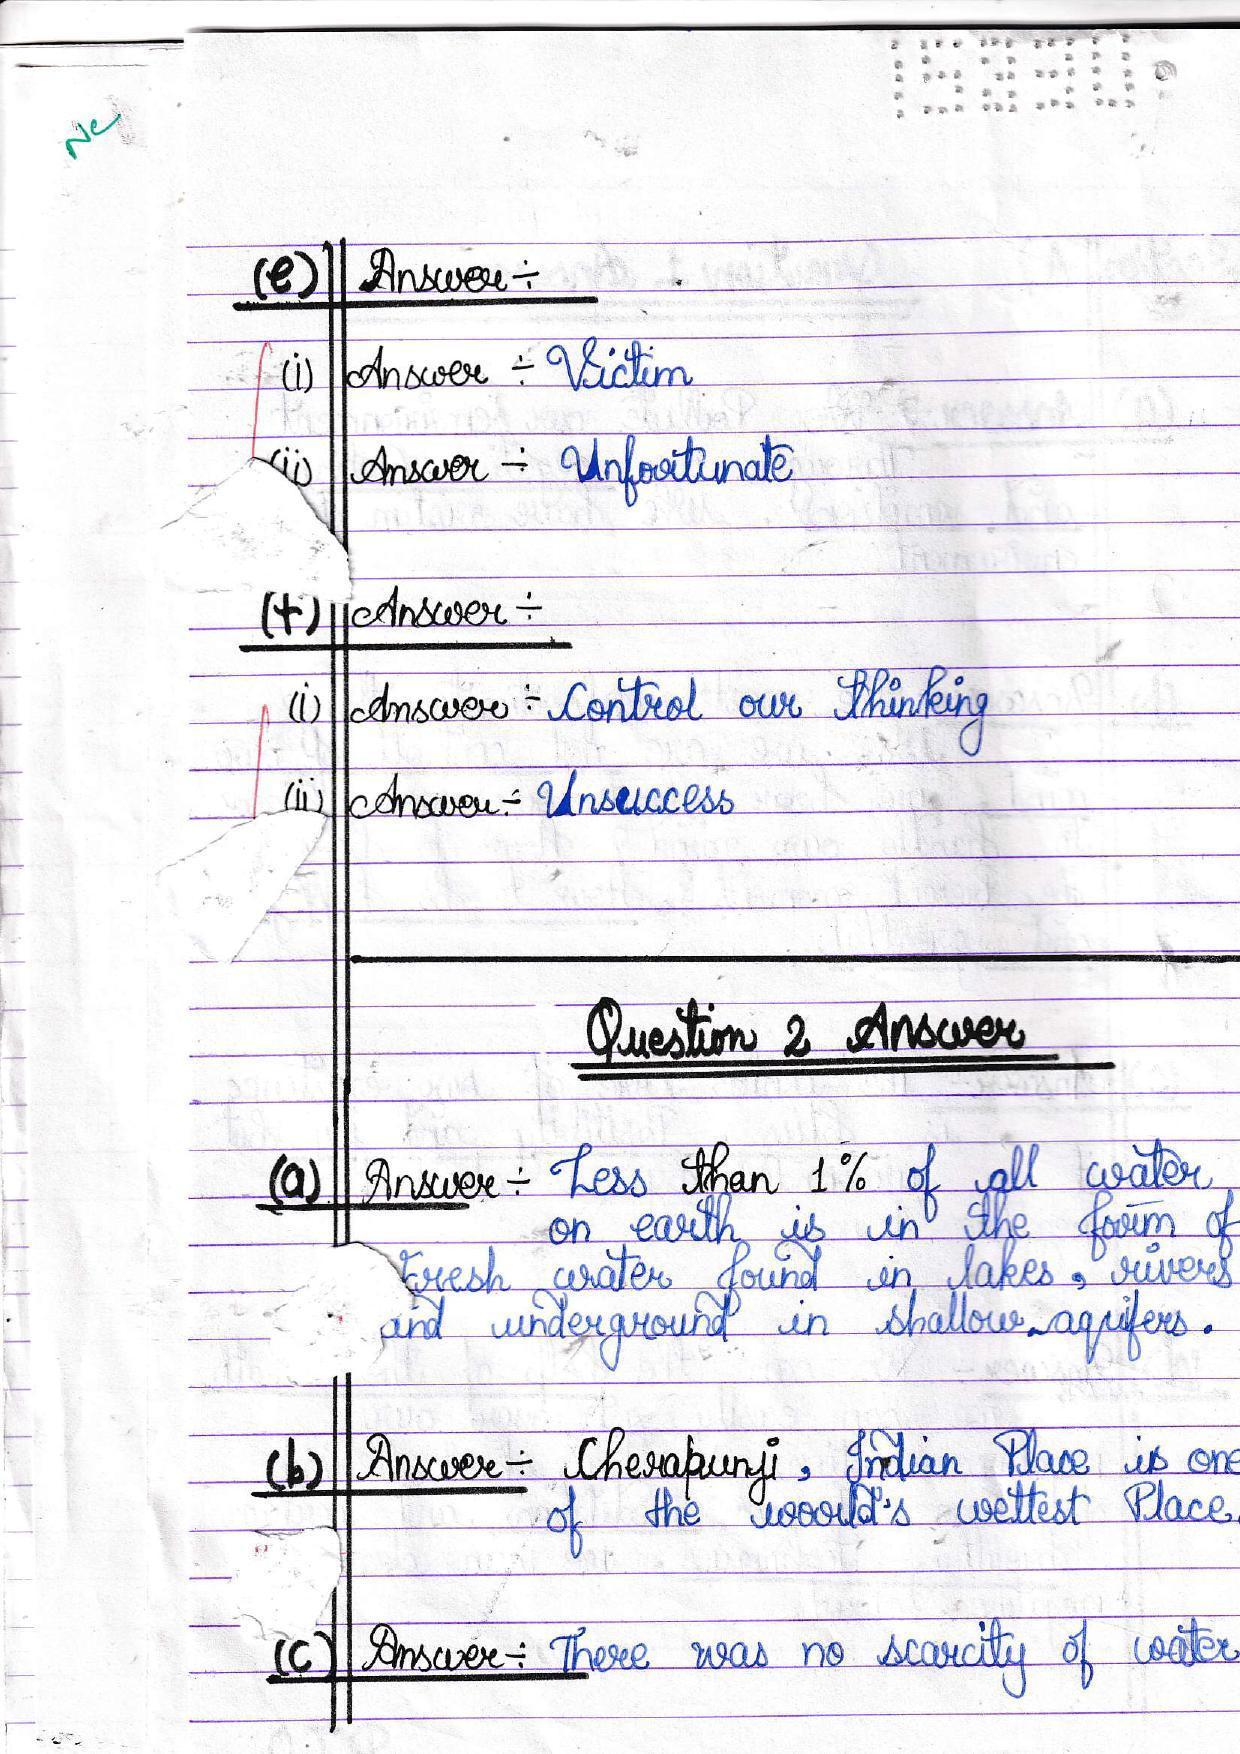 Ne
(e) Answer ÷
(i) Answer ÷ Victim
(ii) Answer ÷ Unfortunate
(f) Answer ÷
(i) Answer ÷ Control our thinking
(ii) Answer ÷ Unsuccess
Question 2 Answer
(a) Answer ÷ Less than 1% of all water
on earth is in the form of
fresh water found in lakes, rivers
and underground in shallow aquifers.
(b) Answer ÷ Cherapunji, Indian Place is one
of the world's wettest Place.
(c) Answer ÷ There was no scarcity of water